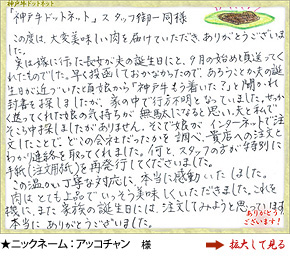 神戸牛ドットネット
「神戸牛ドットネット」スタッフ御一同様
この度は、大変美味しい肉を届けていただき、ありがとうございました。
実は嫁に行った長女が夫の誕生日にと、9月の始めに頃送ってくれたものでした。早く投函しておかなかったので、あろうことか夫の誕生日が近づいたと頃娘から「神戸牛もう着いた?」と聞かれ
封書を探しましたが、家の中で行方不明となっていました。せっかく送ってくれた娘の気持ちが無駄になると思い夫と私で
そこら中探しましたがありません。そこで娘がインターネットで注文したことで、どこの会社だったかを調べ、貴店への注文と
わかり連絡を取ってくれました。何と、スタッフの方が特別に
手紙(注文用紙)を再発行してくださいました。
この温かい丁寧な対応に、本当に感動いたしました。
肉はとても上品でいっそう美味しくいただきました。これを
機に、また家族の誕生日には、注文してみようと思っています。
本当にありがとうございました。
ありがとう
ございます!
★ニックネーム:アッコチャン 様
拡大して見る